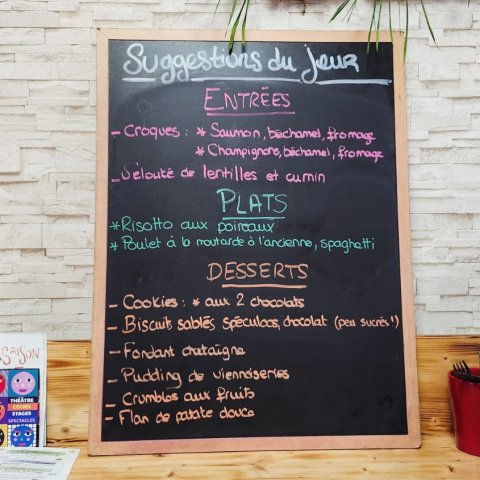 Suggestions du jour
ENTRÉES
- Croques : * Saumon, béchamel, fromage
* Champignons, béchamel, fromage
- Velouté de lentilles et cumin
PLATS
* Risotto aux poireaux
* Poulet à la moutarde à l'ancienne, spaghetti
DESSERTS
- Cookies : * aux 2 chocolats
- Biscuits sablés spéculoos, chocolat (peu sucrés !)
- Fondant chataîgne
- Pudding de viennoiseries
- Crumbles aux fruits
- Flan de patate douce
SAISON
THÉÂTRE
COURS
STAGES
SPECTACLES